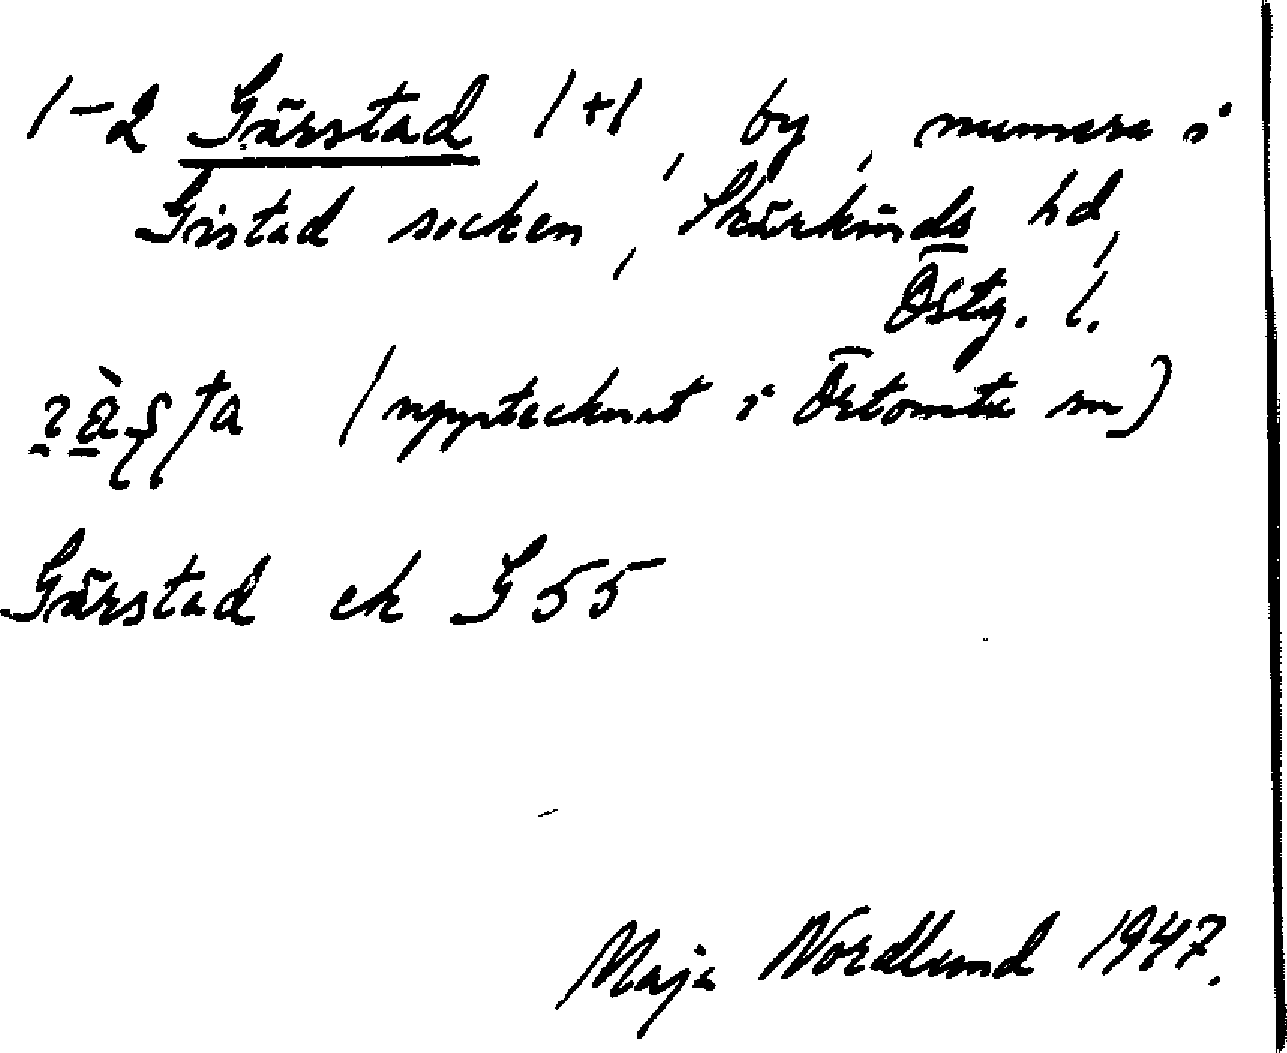 1-2 Gärstad 1+1, by, numera i
Gistad socken, Skärkinds hd,
Östg. l.
(upptecknat i Örtomta sn)
Gärstad ek G 55
Maja Nordlund 1947.